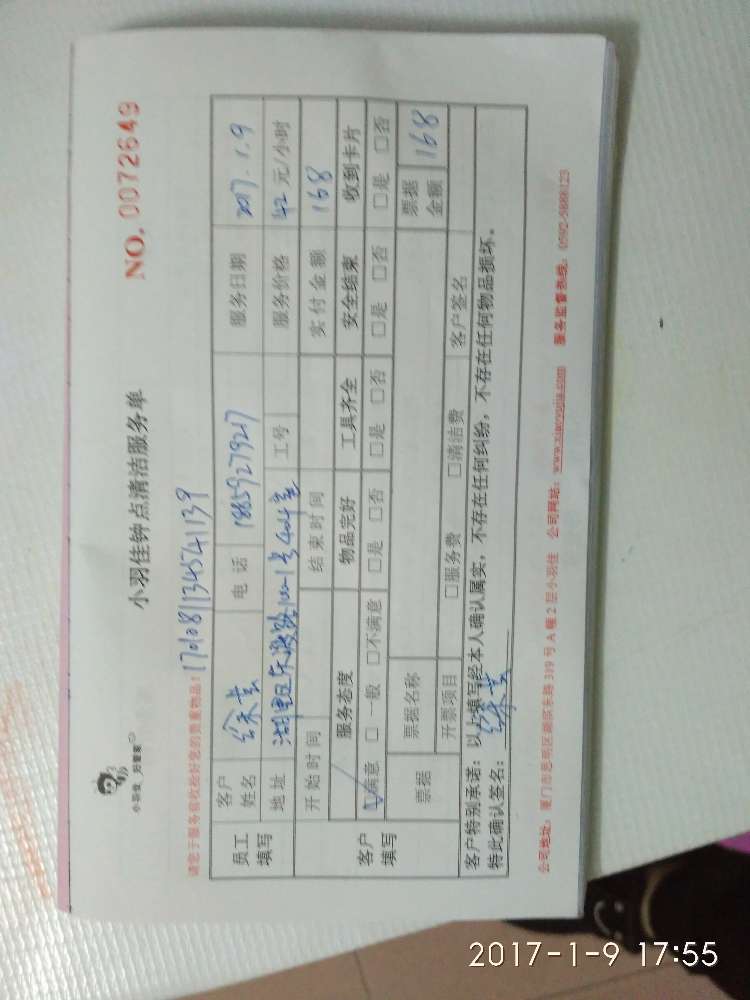 小羽佳 好管家
小羽佳钟点清洁服务单
NO. 0072649
请您于服务前收检好您的贵重物品!
170108113454 1139
员工填写 客户姓名 电话 18859279217 服务日期 2017.1.9
地址 工号 服务价格 42 元/小时
开始时间 结束时间 实付金额 168
客户填写 服务态度 物品完好 工具齐全 安全结束 收到卡片
满意 □一般 □不满意 □是 □否 □是 □否 □是 □否 □是 □否
票据 票据名称 票据金额 168
开票项目 □服务费 □清洁费 客户签名
客户特别承诺:以上填写经本人确认属实,不存在任何纠纷,不存在任何物品损坏。
特此确认签名:
公司地址:厦门市思明区湖滨东路319号A幢2层小羽佳 公司网站:www.xiaoyujia.com 服务监督热线:0592-5888123
2017-1-9 17:55